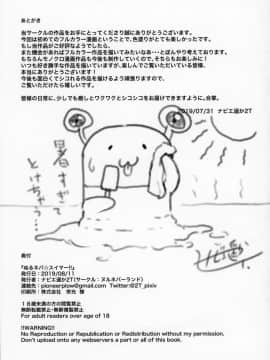 あとがき
当サークルの作品をお手にとってくださり誠にありがとうございます。
今回は初めてのフルカラー漫画ということで、色塗りがとても楽しかったです。
もし当作品がご好評なようでしたら、
また機会があればフルカラー作品を描いてみたいなあ・・・とぼんやり考えております。
もちろんモノクロ漫画作品も今後も制作していくので、そちらもお楽しみに!
いつも好き勝手な作品を描いていますが、楽しんでご覧いただいている皆様、
本当にありがとうございます!
今後も面白くてシコれる作品を描けるよう頑張りますので、
これからもご覧いただければ幸いです。
皆様の日常に、少しでも癒しとワクワクとシコシコをお届けできますように。合掌。
2019/07/31 ナビエ遥か2T
暑すぎて
とけちゃう…
奥付
『ぬるネバ☆スイマー!!』
発行日:2019/08/11
発行者:ナビエ遥か2T(サークル:ヌルネバーランド)
連絡先:pioneerplow@gmail.com Twitter:@2T_pixiv
印刷所:株式会社 栄光 様
18歳未満の方の閲覧禁止
無断転載禁止・無断複製禁止
For adult readers over age of 18
!!WARNING!!
No Reproduction or Republication or Redistribution without my permission.
Don't upload onto any webservers a part or all of this book.